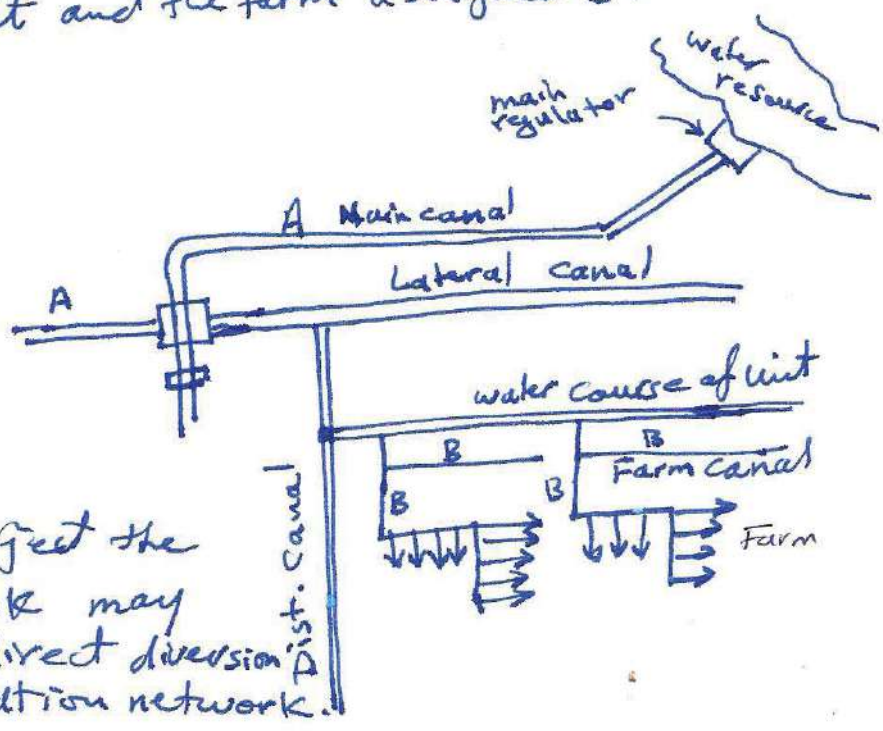 t and the farm
water
resource
main
regulator
A Main canal
A
Lateral canal
water course of Unit
B
B
Farm canal
B
B
Farm
Dist. Canal
ject the
k may
irect diversion
ution network.